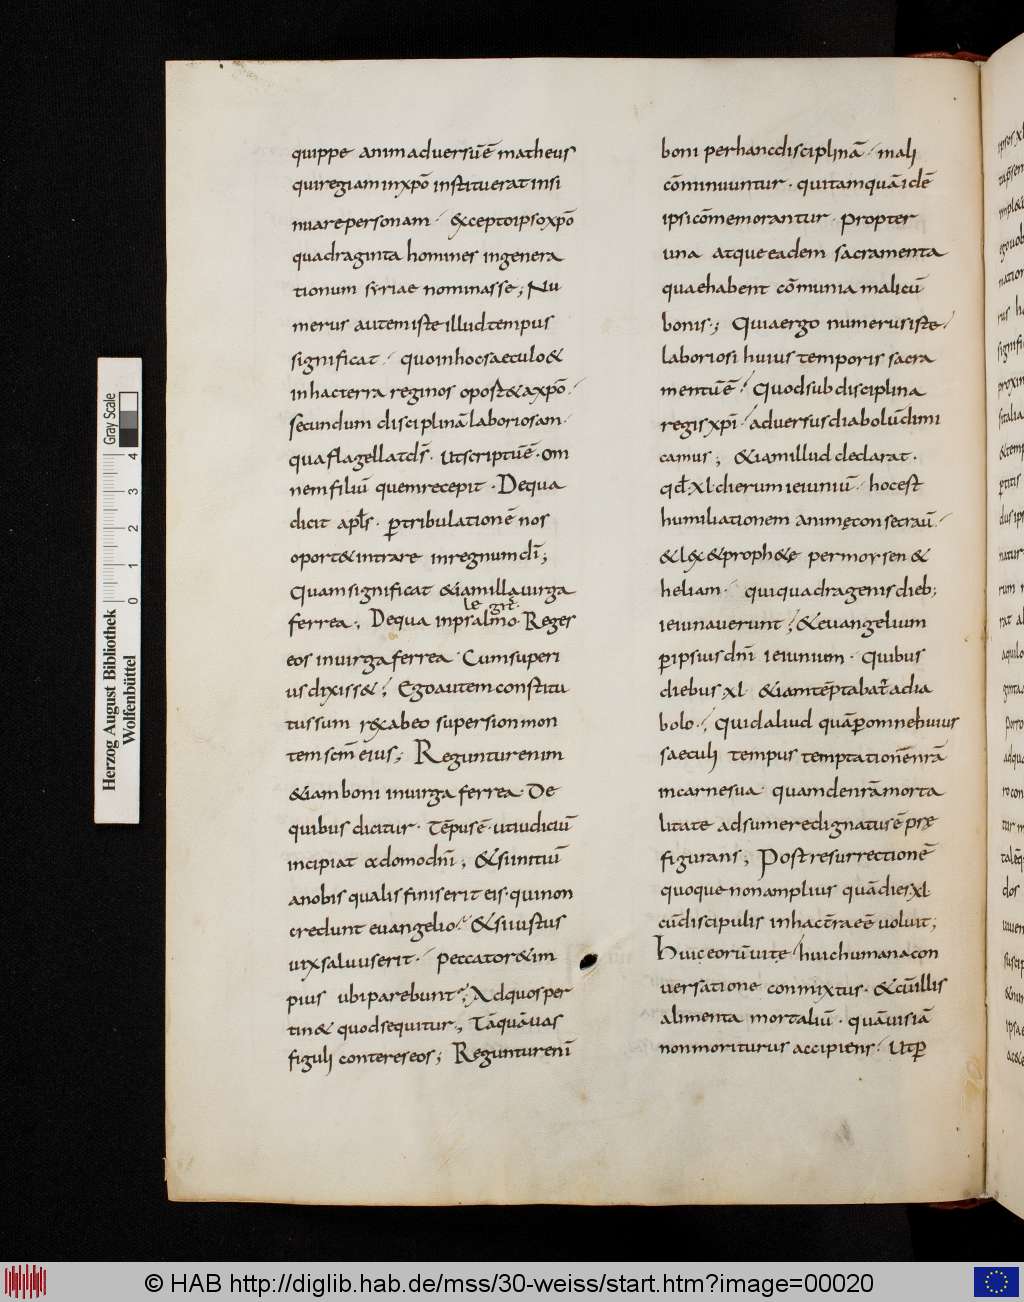 quippe animaduersū ē matheus
qui regiam in xpō instituerat insi
nuare personam· excepto ipso xpō
quadraginta homines in genera
tionum syriae nominasse; Nu
merus autem iste illud tempus
significat· quo in hoc saeculo &
in hac terra regi nos oport& a xpō·
secundum disciplinā laboriosam·
qua flagellat ds̄· ut scriptū ē· om
nem filiū quem recepit· De qua
dicit apl̄s· ꝑ tribulationē nos
oport& intrare in regnum dī;
Quam significat &iam illa uirga
ferrea; De qua in psalmo· Reges
legit̄·
eos in uirga ferrea· Cum superi
us dixiss&; Ego autem constitu
tus sum rex ab eo super sion mon
tem scm̄ eius; Reguntur enim
&iam boni in uirga ferrea· De
quibus dicitur· Tēpus ē· ut iudiciū
incipiat a domo dn̄i; & si initiū
a nobis qualis finis erit eis· qui non
credunt euangelio· & si iustus
uix saluus erit· peccator & im
pius ubi parebunt; Ad quos per
tin& quod sequitur; Tāquā uas
figuli conteres eos; Reguntur enī
boni per hanc disciplinā· mali
cōminuuntur· qui tamquā idē
ipsi cōmemorantur· propter
una atque eadem sacramenta
quae habent cōmunia mali cū
bonis·; Quia ergo numerus iste·
laboriosi huius temporis sacra
mentū ē· Quod sub disciplina
regis xp̄i· aduersus diabolū dimi
camus; &iam illud declarat·
qđ· xl· dierum ieiuniū· hoc est
humiliationem animę consecrau̅·
& lex & proph&ę per moysen &
heliam· qui quadragenis dieb;
ieiunauerunt; & euangelium
ꝑ ipsius dn̄i ieiunium· Quibus
diebus xl &iam tēptabat̄ a dia
bolo·; Quid aliud quā ꝑ omne huius
saeculi tempus temptationē nr̄ā
in carne sua· quam de nr̄ā morta
litate adsumere dignatus ē pre
figurans; Post resurrectionē
quoque non amplius quā dies xl
cū discipulis in hac tr̄a eē uoluit;
Huic eorū uitę· huic humana con
uersatione conmixtus· & cū illis
alimenta mortaliū· quāuis iā
non moriturus accipiens· Ut ꝑ
Gray Scale
0 1 2 3 4
Herzog August Bibliothek
Wolfenbüttel
© HAB http://diglib.hab.de/mss/30-weiss/start.htm?image=00020